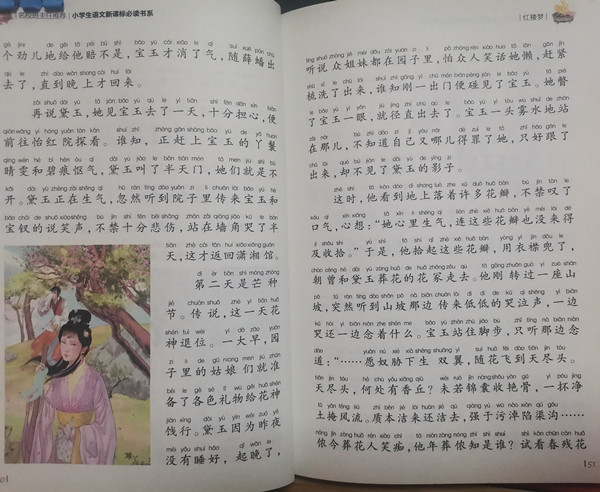 名校班主任推荐 | 小学生语文新课标必读书系
个劲儿地给他赔不是，宝玉才消了气，随薛蟠出
去了，直到晚上才回来。
再说黛玉，她见宝玉去了一天，十分担心，便
前往怡红院探看。谁知，正赶上宝玉的丫鬟
晴雯和碧痕怄气，黛玉叫了半天门，她们就是不
开。黛玉正在生气，忽然听到院子里传来宝玉和
宝钗的说笑声，不禁十分悲伤，站在墙角哭了半
天，这才返回潇湘馆。
第二天是芒种
节。传说，这一天花
神退位。一大早，园
子里的姑娘们就准
备了各色礼物给花神
饯行。黛玉因为昨夜
没有睡好，起晚了，
|红楼梦|
听说众姐妹都在园子里，怕众人笑话她懒，赶紧
梳洗了出来，谁知刚一出门便碰见了宝玉。她瞥
了宝玉一眼，就径直出去了。宝玉一头雾水地站
在那儿，不知道自己又哪儿得罪了她，只好跟了
出来，却不见了黛玉的影子。
这时，他看到地上落着许多花瓣，不禁叹了
口气，心想：“她心里生气，连这些花瓣也没来得
及收拾。”于是，他拾起这些花瓣，用衣襟兜了，
朝曾和黛玉葬花的花冢走去。他刚转过一座山
坡，突然听到山坡那边传来低低的哭泣声，一边
哭还一边念着什么。宝玉站住脚步，只听那边念
道：“……愿奴胁下生双翼，随花飞到天尽头。
天尽头，何处有香丘？未若锦囊收艳骨，一抔净
土掩风流。质本洁来还洁去，强于污淖陷渠沟……
侬今葬花人笑痴，他年葬侬知是谁？试看春残花
151